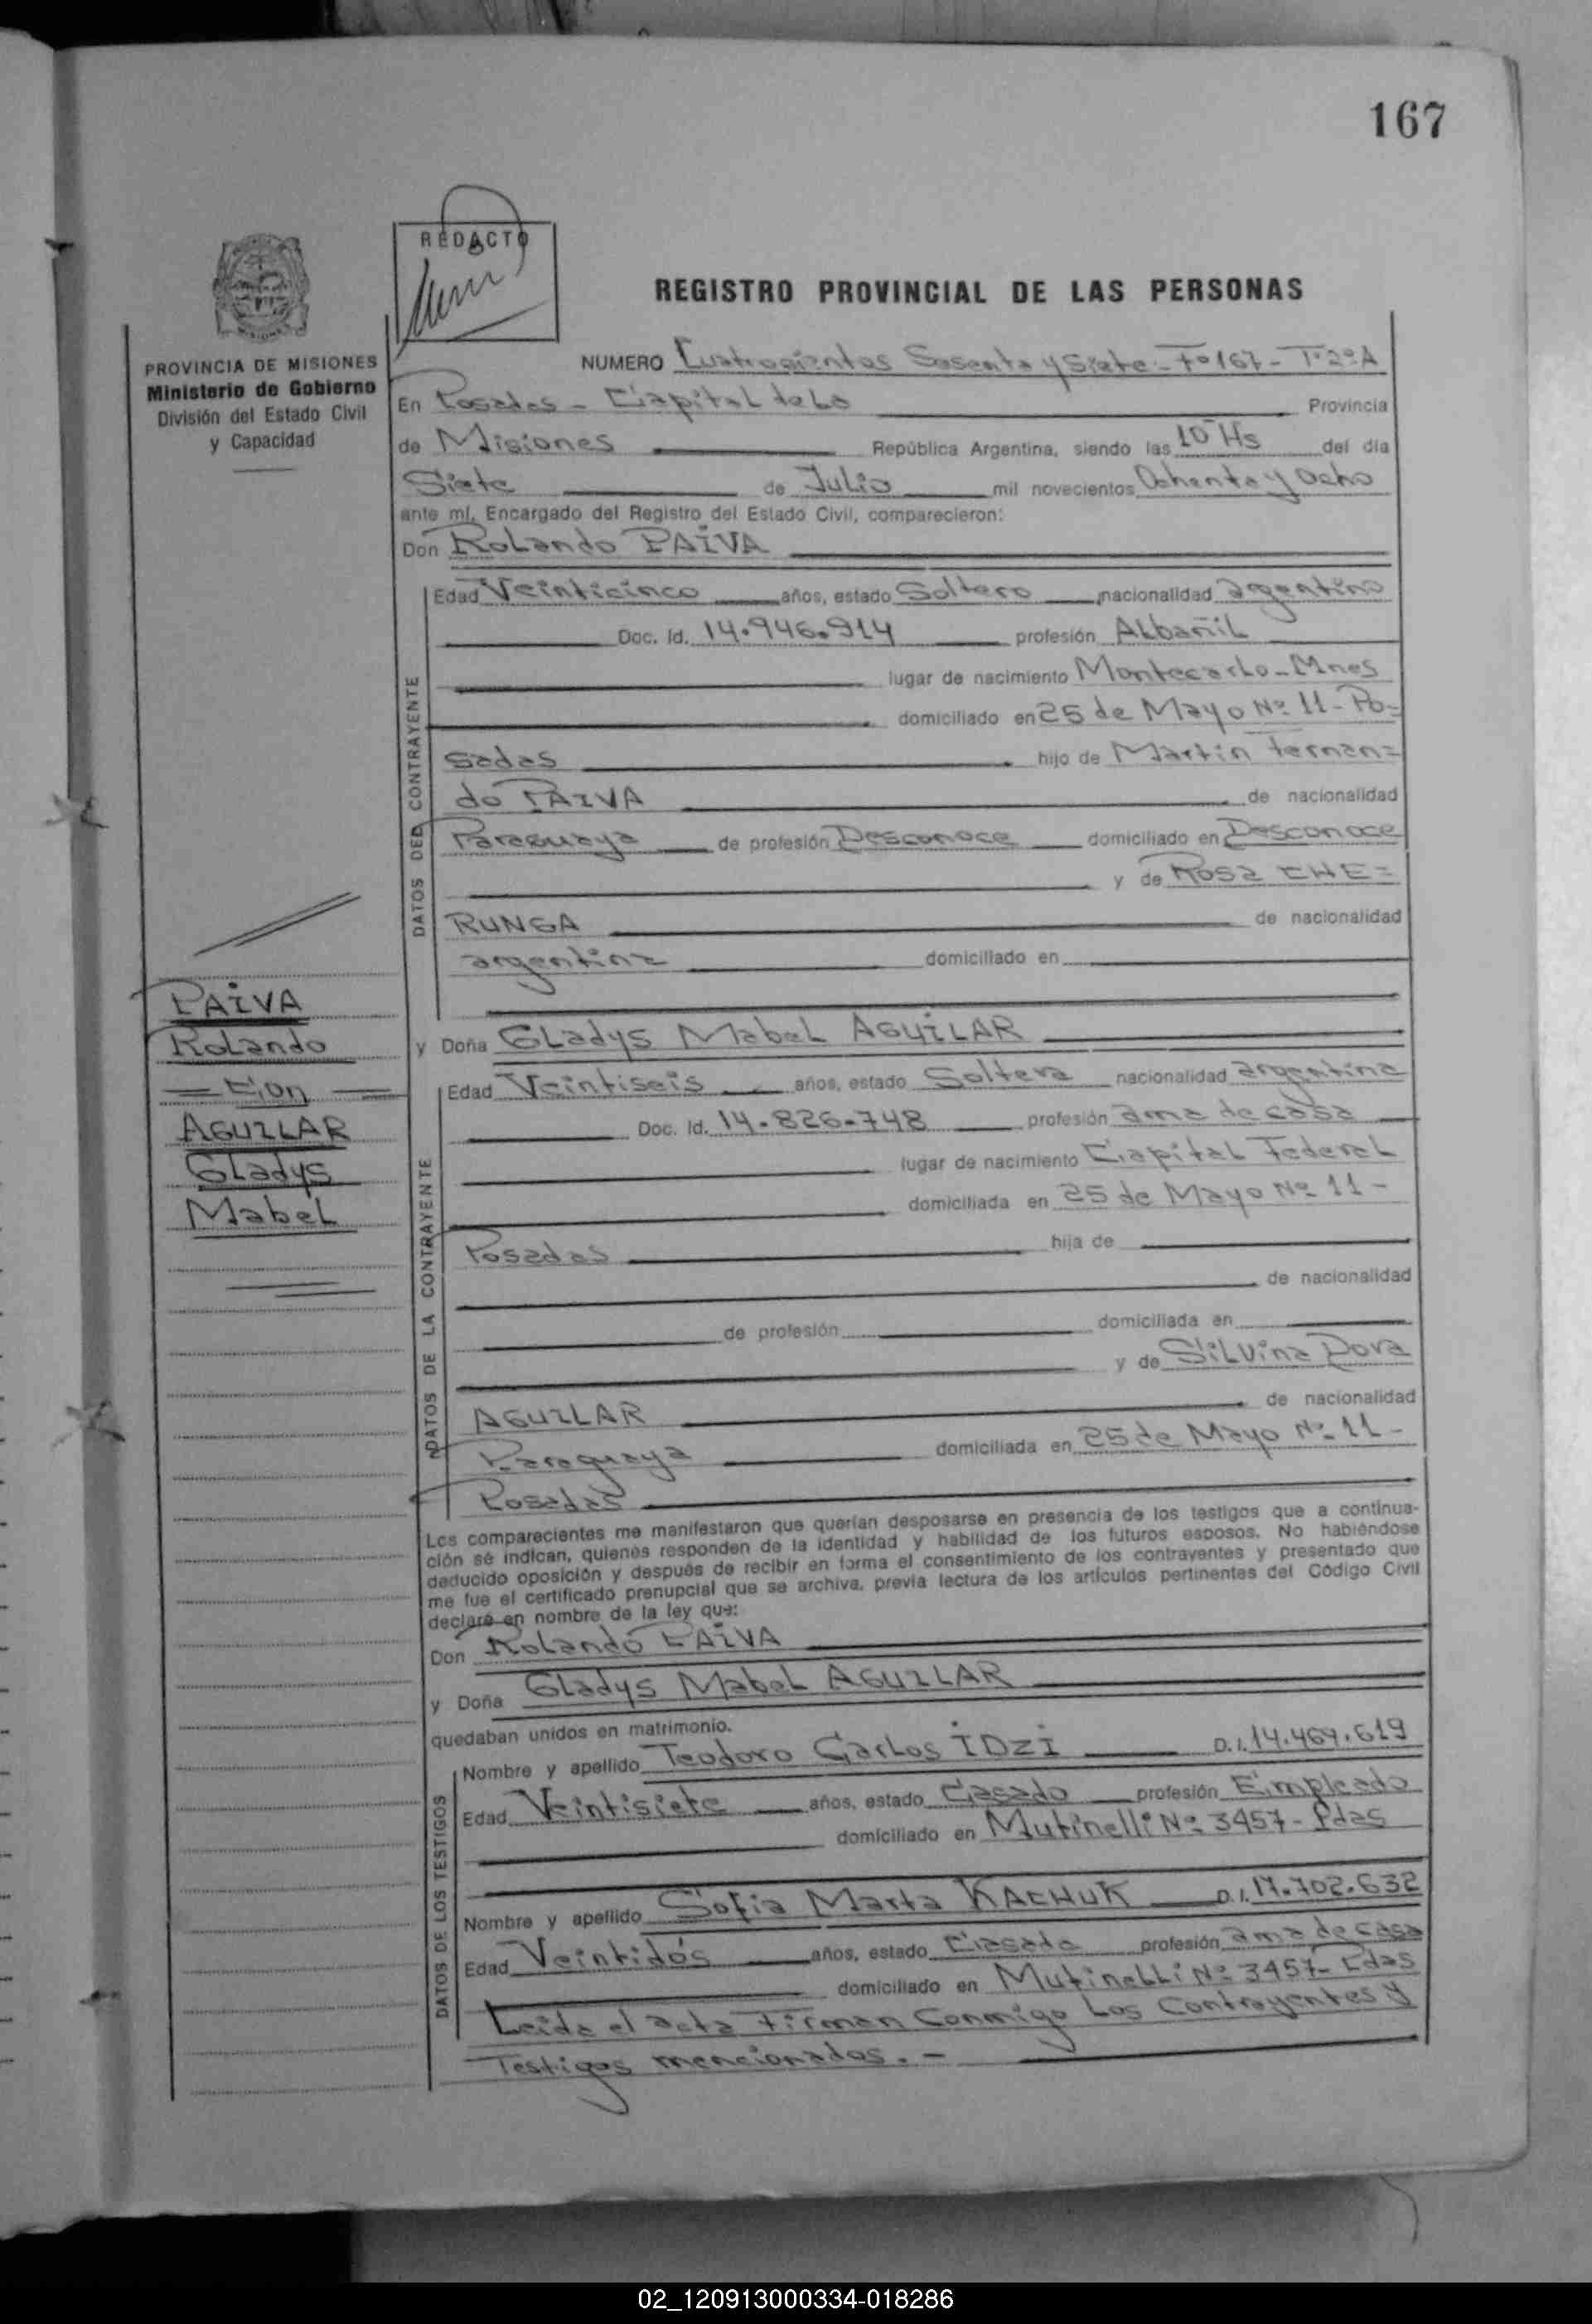 167
REDACTO
REGISTRO PROVINCIAL DE LAS PERSONAS
PROVINCIA DE MISIONES
Ministerio de Gobierno
División del Estado Civil
y Capacidad
NUMERO Cuatrocientos Sesenta y Siete - Fº 167 - Tº 2º A
En Posadas - Capital de la Provincia
de Misiones República Argentina, siendo las 10 Hs del día
Siete de Julio mil novecientos Ochenta y Ocho
ante mí, Encargado del Registro del Estado Civil, comparecieron:
Don Rolando PAIVA
DATOS DEL CONTRAYENTE
Edad Veinticinco años, estado Soltero nacionalidad argentino
Doc. Id. 14.946.914 profesión Albañil
lugar de nacimiento Montecarlo - Mnes
domiciliado en 25 de Mayo Nº 11 - Po=
sadas hijo de Martin Fernan=
do PAIVA de nacionalidad
Paraguaya de profesión Desconoce domiciliado en Desconoce
y de Rosa CHE=
RUNGA de nacionalidad
argentina domiciliado en
PAIVA
Rolando
= Con =
AGUILAR
Gladys
Mabel
y Doña Gladys Mabel AGUILAR
DATOS DE LA CONTRAYENTE
Edad Veintiseis años, estado Soltera nacionalidad argentina
Doc. Id. 14.826.748 profesión ama de casa
lugar de nacimiento Capital Federal
domiciliada en 25 de Mayo Nº 11 -
Posadas hija de
de nacionalidad
de profesión domiciliada en
y de Silvina Dora
AGUILAR de nacionalidad
Paraguaya domiciliada en 25 de Mayo Nº 11 -
Posadas
Los comparecientes me manifestaron que querían desposarse en presencia de los testigos que a continua-
ción se indican, quienes responden de la identidad y habilidad de los futuros esposos. No habiéndose
deducido oposición y después de recibir en forma el consentimiento de los contrayentes y presentado que
me fue el certificado prenupcial que se archiva, previa lectura de los artículos pertinentes del Código Civil
declaré en nombre de la ley que:
Don Rolando PAIVA
y Doña Gladys Mabel AGUILAR
quedaban unidos en matrimonio.
DATOS DE LOS TESTIGOS
Nombre y apellido Teodoro Carlos IDZI D.I. 14.469.619
Edad Veintisiete años, estado Casado profesión Empleado
domiciliado en Mutinelli Nº 3457 - Pdas
Nombre y apellido Sofia Marta KACHUK D.I. 17.702.632
Edad Veintidós años, estado Casada profesión ama de casa
domiciliado en Mutinelli Nº 3457 - Pdas
Leida el acta Firman Conmigo Los Contrayentes y
Testigos mencionados. -
02_120913000334-018286